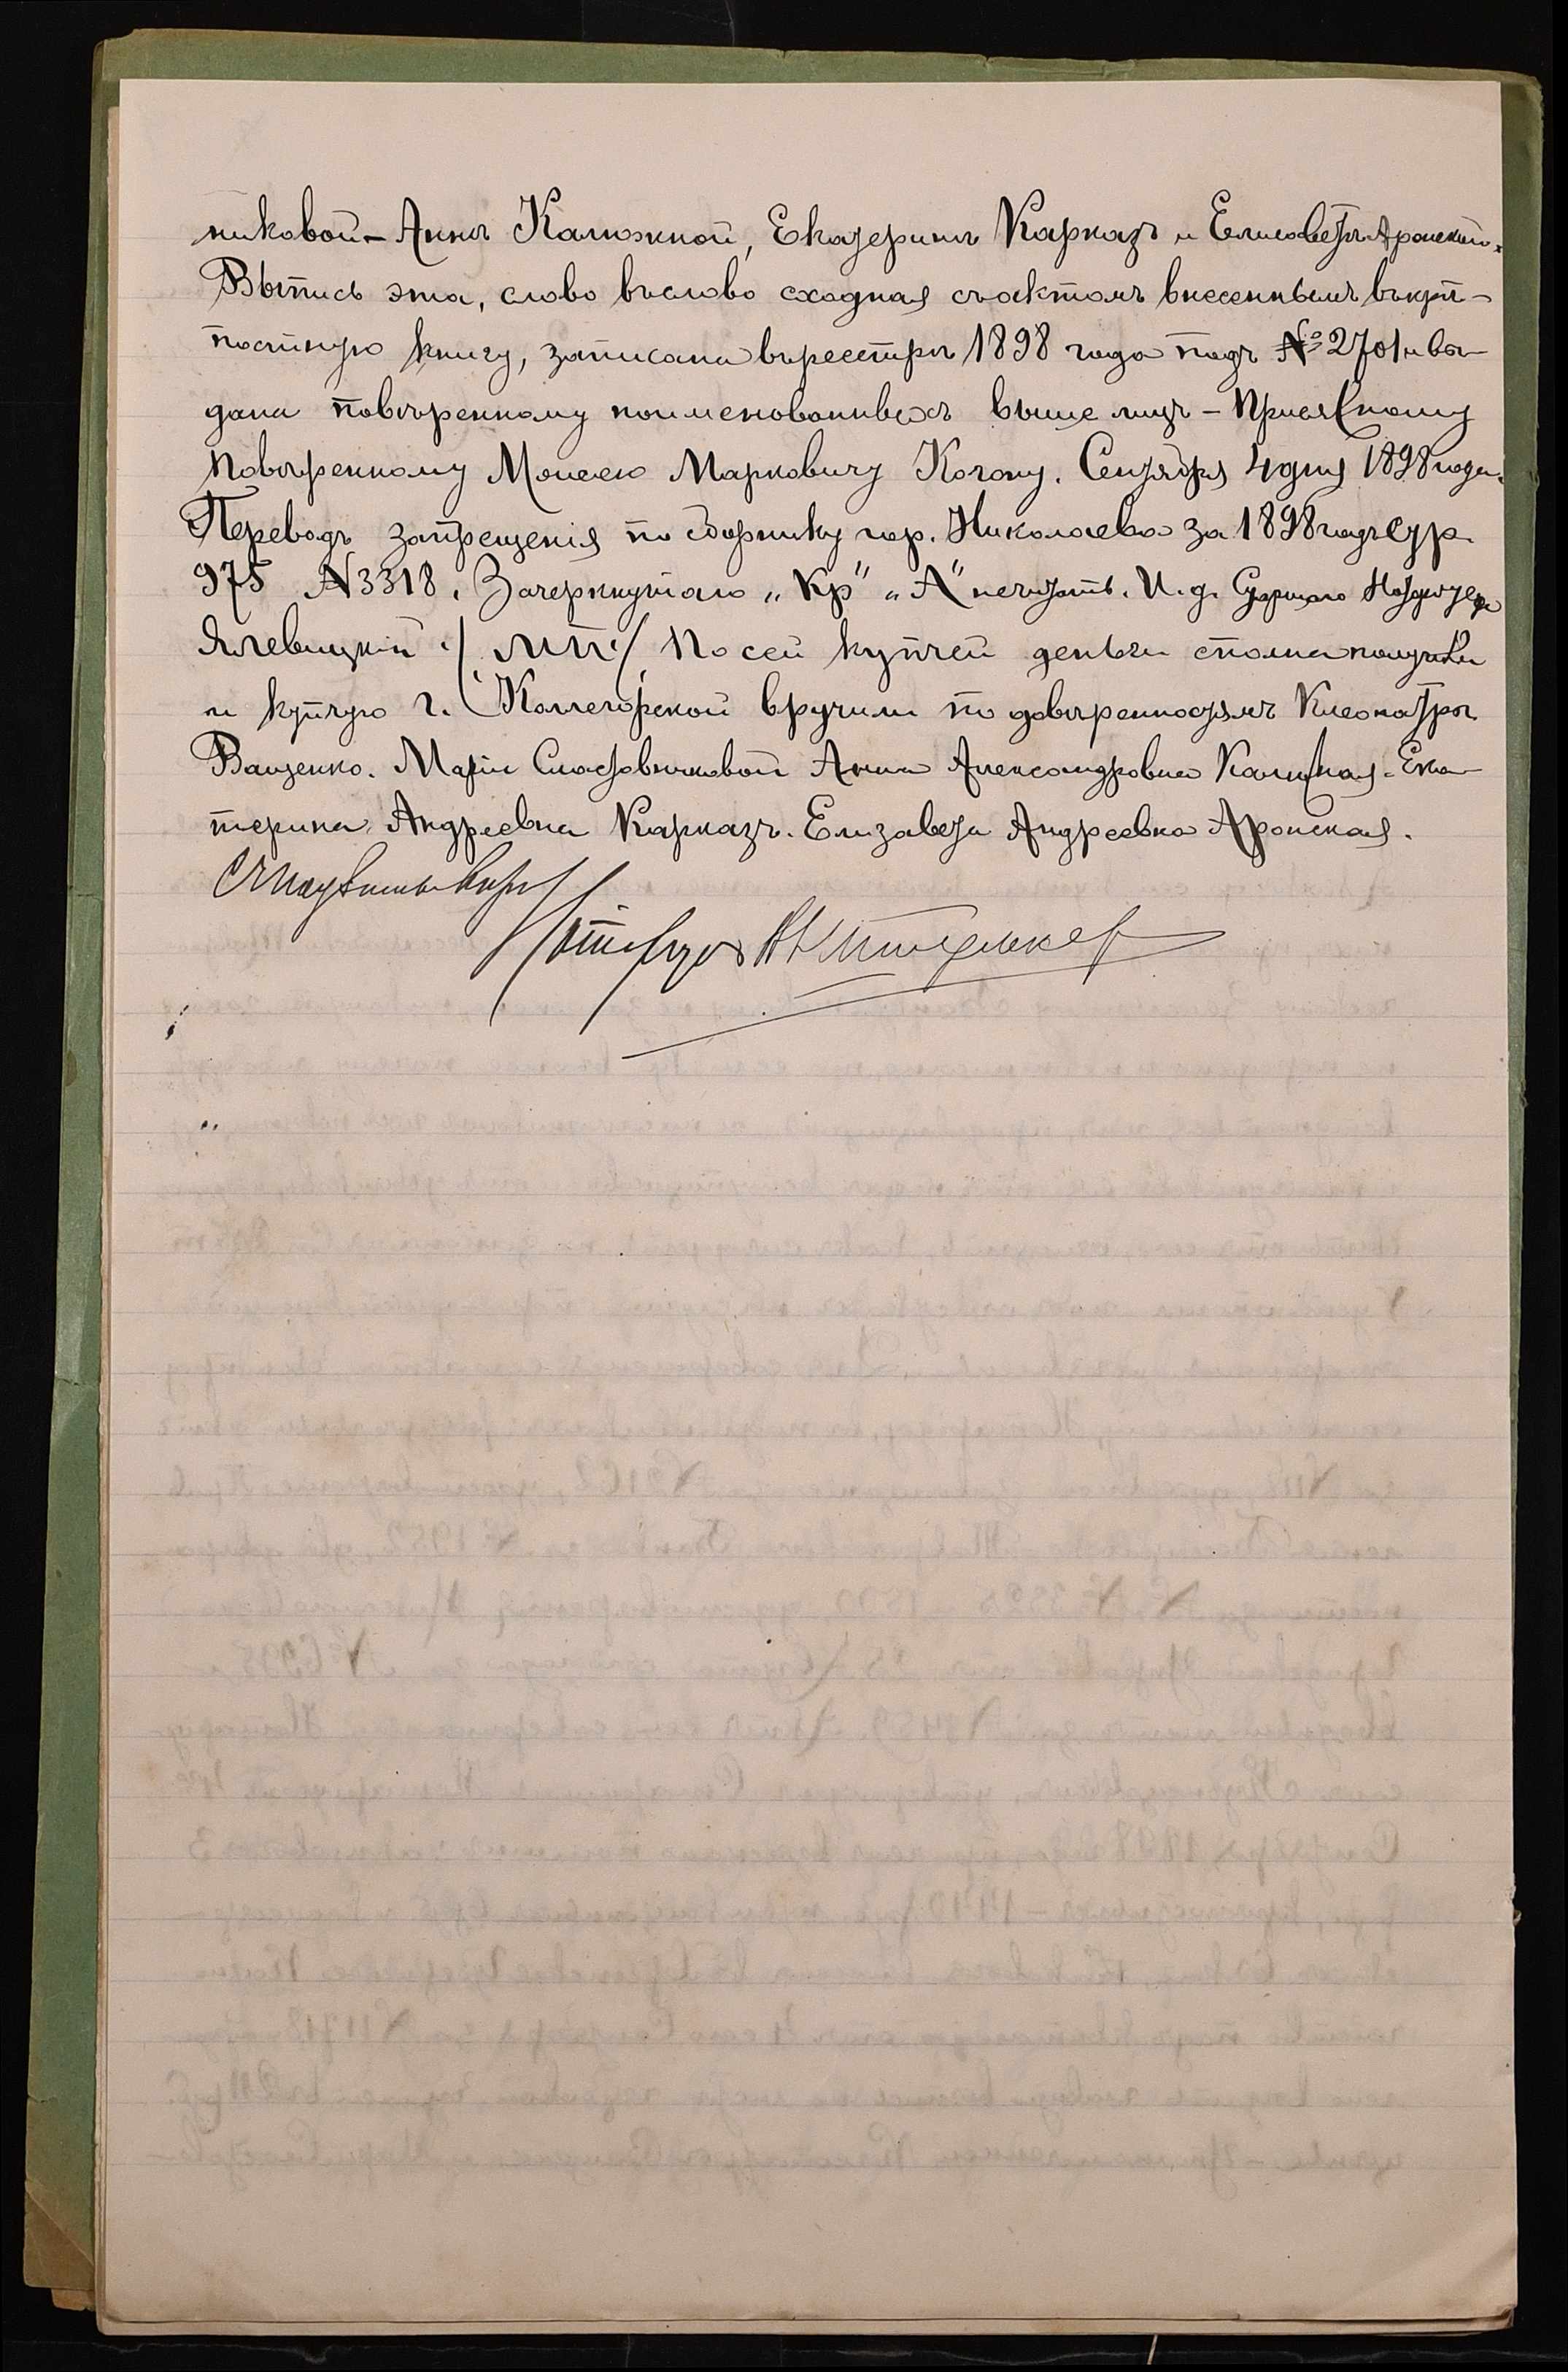 никовой – Аннѣ Калюжной, Екатеринѣ Карказъ и Елисаветѣ Аронской.
Выпись эта, слово въ слово сходная съ актомъ внесеннымъ въ крѣ-
постную книгу, записана въ реестрѣ 1898 года подъ № 2701 и вы-
дана повѣренному поименованныхъ выше лицъ – Присяжному
Повѣренному Моисею Марковичу Когону. Сентября 4 дня 1898 года.
Переводъ запрещенія по сборнику гор. Николаева за 1898 годъ стр.
975 № 3318. Зачеркнутаго „кр" „А" не читать. И. д. Старшаго Нотаріуса
/ М П / По сей купчей деньги сполна получили
и купчую г. вручили по довѣренностямъ Клеопатры
Ващенко. Маріи Анна Александровна Калюжная. Ека-
терина Андреевна Карказъ. Елизавета Андреевна Аронская.
Нотаріусъ